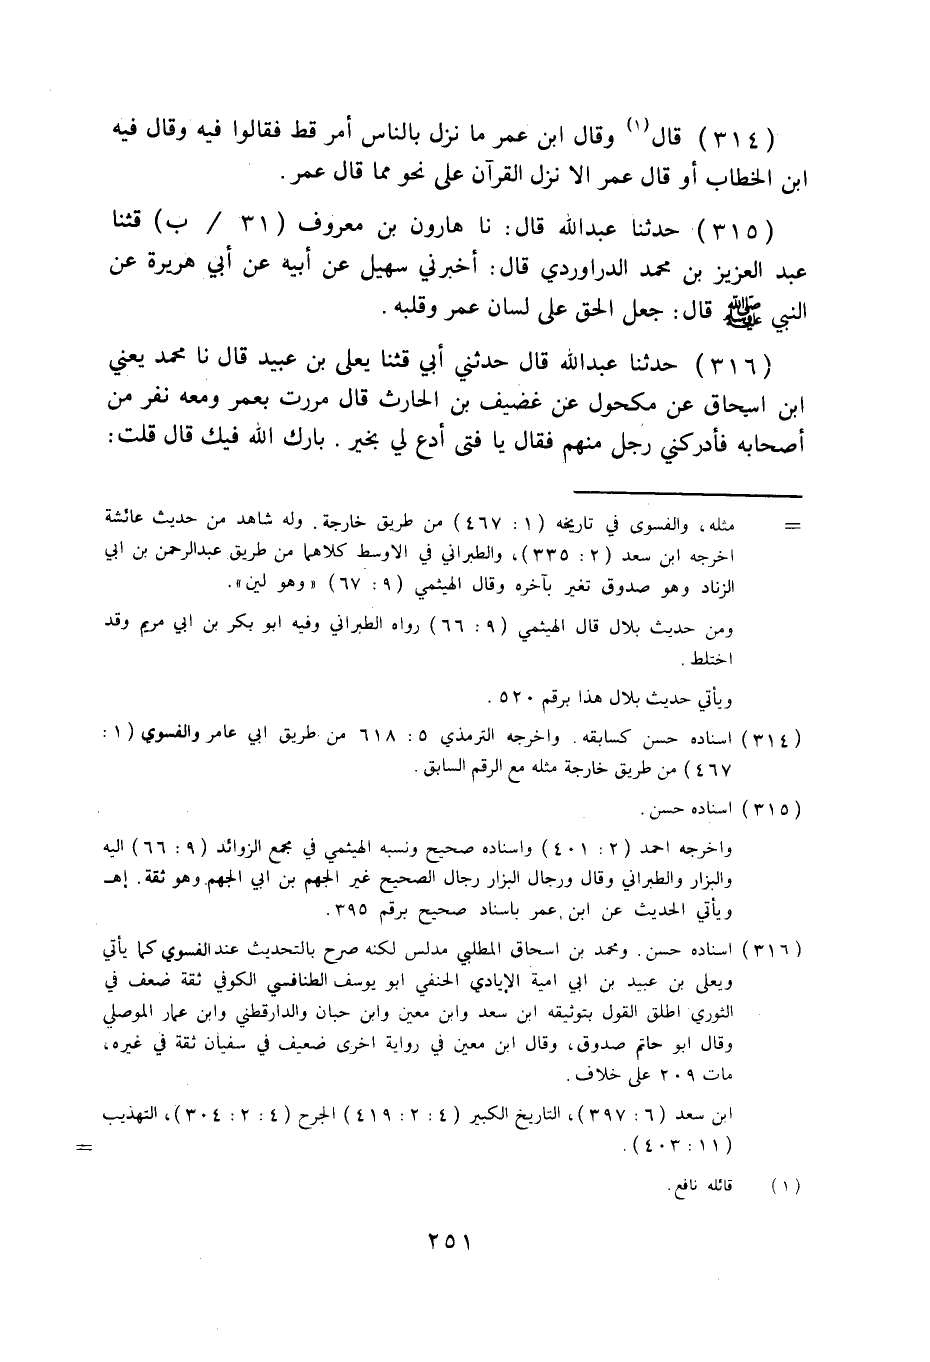 (٣١٤) قال(١) وقال ابن عمر ما نزل بالناس أمر قط فقالوا فيه وقال فيه
ابن الخطاب أو قال عمر الا نزل القرآن على نحو مما قال عمر.
(٣١٥) حدثنا عبدالله قال: نا هارون بن معروف (٣١ / ب) قثنا
عبد العزيز بن محمد الدراوردي قال: أخبرني سهيل عن أبيه عن أبي هريرة عن
النبي ﷺ قال: جعل الحق على لسان عمر وقلبه.
(٣١٦) حدثنا عبدالله قال حدثني أبي قثنا يعلى بن عبيد قال نا محمد يعني
ابن اسحاق عن مكحول عن غضيف بن الحارث قال مررت بعمر ومعه نفر من
أصحابه فأدركني رجل منهم فقال يا فتى أدع لي بخير. بارك الله فيك قال قلت:
= مثله، والفسوى في تاريخه (١: ٤٦٧) من طريق خارجة. وله شاهد من حديث عائشة
اخرجه ابن سعد (٢: ٣٣٥)، والطبراني في الاوسط كلاهما من طريق عبدالرحمن بن ابي
الزناد وهو صدوق تغير بآخره وقال الهيثمي (٩: ٦٧) «وهو لين».
ومن حديث بلال قال الهيثمي (٩: ٦٦) رواه الطبراني وفيه ابو بكر بن ابي مريم وقد
اختلط.
ويأتي حديث بلال هذا برقم ٥٢٠.
(٣١٤) اسناده حسن كسابقه. واخرجه الترمذي ٥: ٦١٨ من طريق ابي عامر والفسوي (١:
٤٦٧) من طريق خارجة مثله مع الرقم السابق.
(٣١٥) اسناده حسن.
واخرجه احمد (٢: ٤٠١) واسناده صحيح ونسبه الهيثمي في مجمع الزوائد (٩: ٦٦) اليه
والبزار والطبراني وقال ورجال البزار رجال الصحيح غير الجهم بن ابي الجهم وهو ثقة. إهـ
ويأتي الحديث عن ابن عمر باسناد صحيح برقم ٣٩٥.
(٣١٦) اسناده حسن. ومحمد بن اسحاق المطلبي مدلس لكنه صرح بالتحديث عند الفسوي كما يأتي
ويعلى بن عبيد بن ابي امية الإيادي الحنفي ابو يوسف الطنافسي الكوفي ثقة ضعف في
الثوري اطلق القول بتوثيقه ابن سعد وابن معين وابن حبان والدارقطني وابن عمار الموصلي
وقال ابو حاتم صدوق، وقال ابن معين في رواية اخرى ضعيف في سفيان ثقة في غيره،
مات ٢٠٩ على خلاف.
ابن سعد (٦: ٣٩٧)، التاريخ الكبير (٤: ٢: ٤١٩) الجرح (٤: ٢: ٣٠٤)، التهذيب
(١١: ٤٠٣). =
(١) قائله نافع.
٢٥١